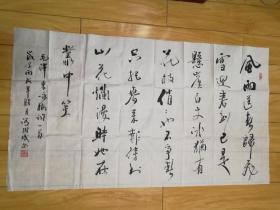 風雨送春歸飛
雪迎春到已是
懸崖百丈冰猶有
花枝俏〻也不争春
只把春来報待到
山花爛漫時她在
叢中笑
毛澤東詠梅詞一首